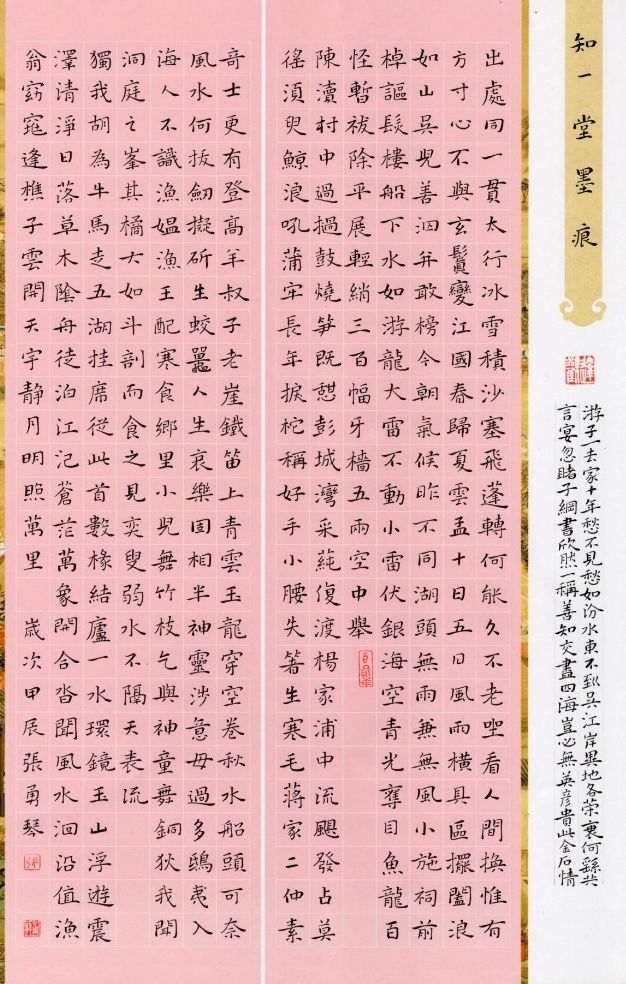 知一堂墨痕
游子一去家十年愁不見愁如汾水東不到吳江岸異地各榮衰何繇共
言宴忽睹子綱書欣然一稱善知交盡四海豈必無英彥貴此金石情
出處同一貫太行冰雪積沙塞飛蓬轉何能久不老坐看人間換惟有
方寸心不與玄鬢變江國春歸夏雲孟十日五日風雨橫具區擺闔浪
如山吳兒善泅幷敢榜今朝氣候昨不同湖頭無雨兼無風小施祠前
棹謳鬆樓船下水如游龍大雷不動小雷伏銀海空青光奪目魚龍百
怪暫祓除平展輕綃三百幅牙檣五兩空中舉
陳瀆村中過撾鼓燒笋既憩彭城灣采蒓復渡楊家浦中流颶發占莫
徭湏臾鯨浪吼蒲牢長年捩柁稱好手小腰失箸生寒毛蔣家二仲素
奇士更有登高羊叔子老崖鐵笛上青雲玉龍穿空卷秋水船頭可奈
風水何拔劒擬斫生蛟鼉人生哀樂固相半神靈涉意毋過多鴟夷入
海人不識漁媼漁王配寒食鄉里小兒舞竹枝乞與神童舞銅狄我聞
洞庭之峯其橘大如斗剖而食之見奕叟弱水不隔天表流
獨我胡為牛馬走五湖挂席從此首數椽結廬一水環鏡玉山浮遊震
澤清淨日落草木陰舟徒泊江汜蒼茫萬象開合沓聞風水洄沿值漁
翁窈窕逢樵子雲開天宇靜月明照萬里 歲次甲辰張勇琴